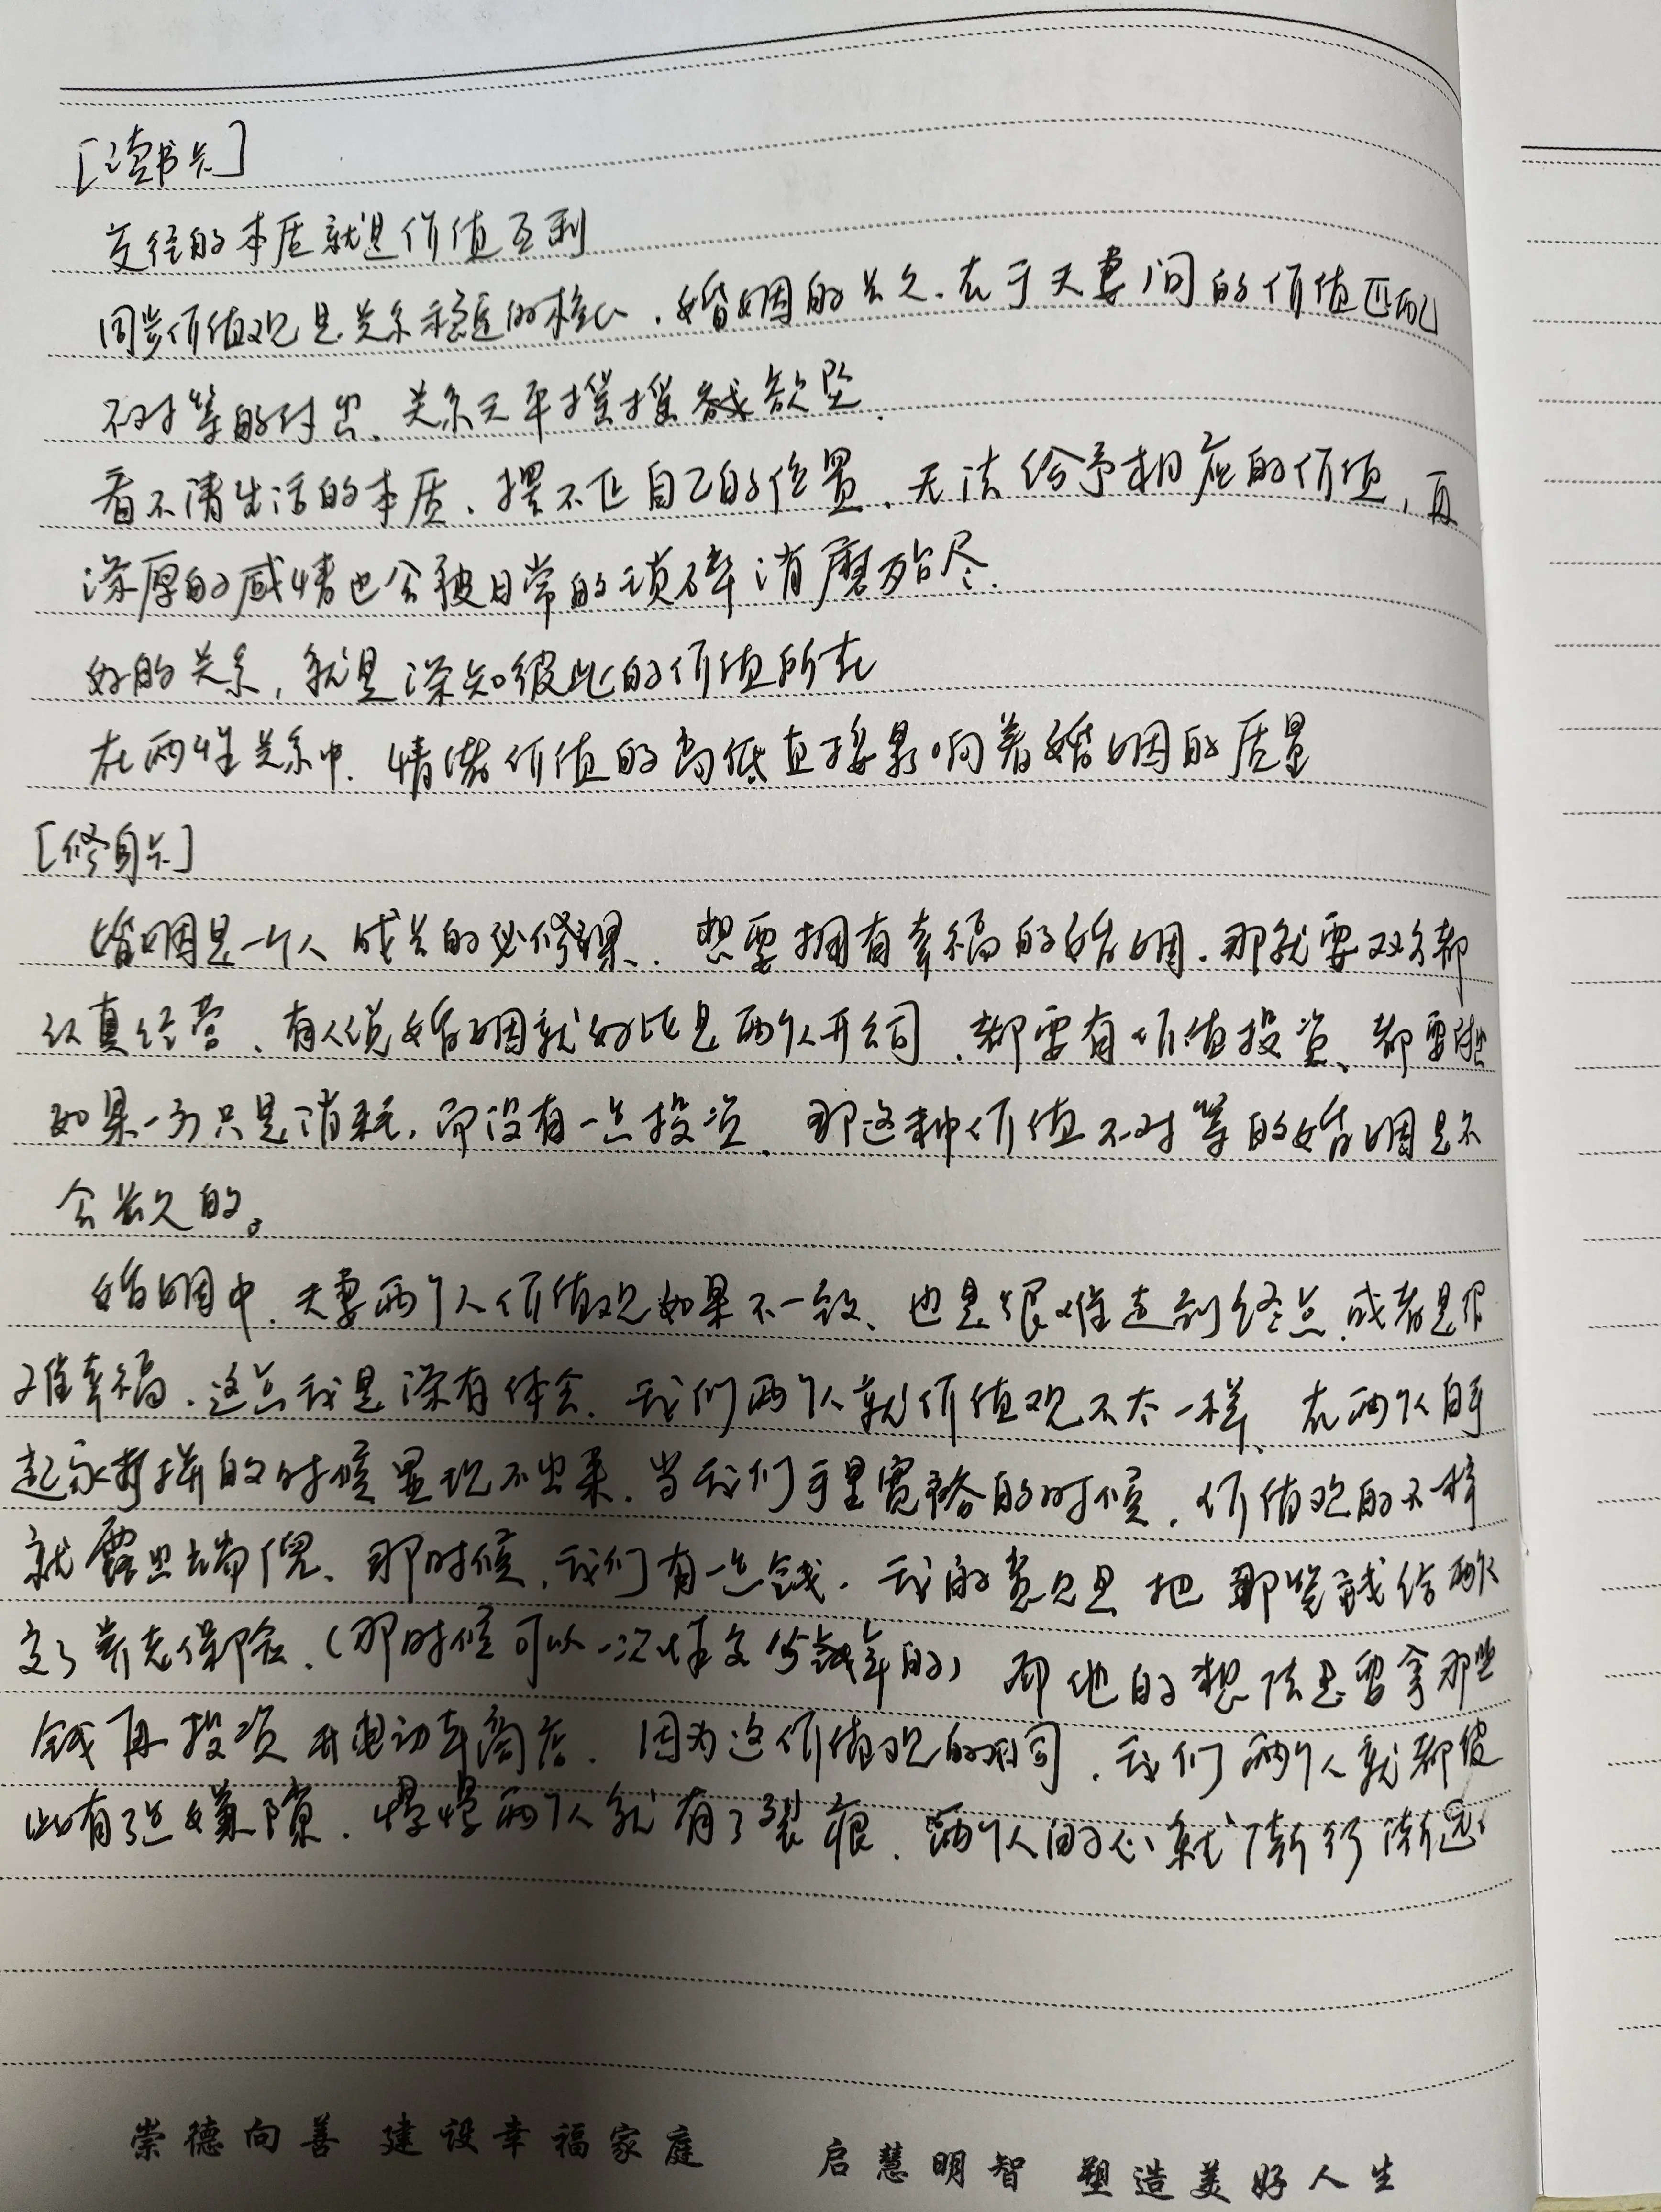 [读书长]
交往的本质就是价值互利
同步价值观是关系稳定的核心.婚姻的长久.在于夫妻间的价值匹配
不对等的付出.关系天平摧摧欲坠.
看不清生活的本质、摆不正自己的位置、无法给予相应的价值,再
深厚的感情也会被日常的琐碎消磨殆尽.
好的关系,就是深知彼此的价值所在
在两性关系中.情绪价值的高低直接影响着婚姻的质量
[修身长]
婚姻是一个人成长的必修课、.想要拥有幸福的婚姻.那就要双方都
认真经营、有人说婚姻就好比是两个人开公司.都要有价值投资、都要
如果一方只是消耗,而没有一点投资.那这种价值不对等的婚姻是不
会长久的。
婚姻中.夫妻两个人价值观如果不一致、也是很难走到终点.或者是很
难幸福.这点我是深有体会.我们两个人就价值观不太一样、在两个人白手
起家打拼的时候显现不出来.当我们手里宽裕的时候.价值观的不一样
就露出端倪、那时候,我们有一点钱.我的意见是把那些钱给两个人
交了养老保险.(那时候可以一次性交15年的)而他的想法是要拿那些
钱再投资开电动车商店.因为这价值观的不同.我们两个人就都彼
此有了点嫌隙.慢慢两个人就有了裂痕.两个人的心就渐行渐远
崇德向善 建设幸福家庭 启慧明智 塑造美好人生